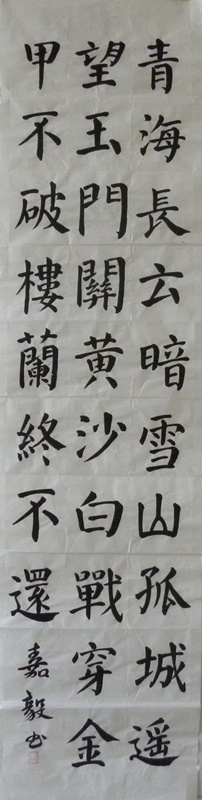 青海長云暗雪山孤城遥
望玉門關黄沙白戰穿金
甲不破樓蘭終不還
嘉毅书